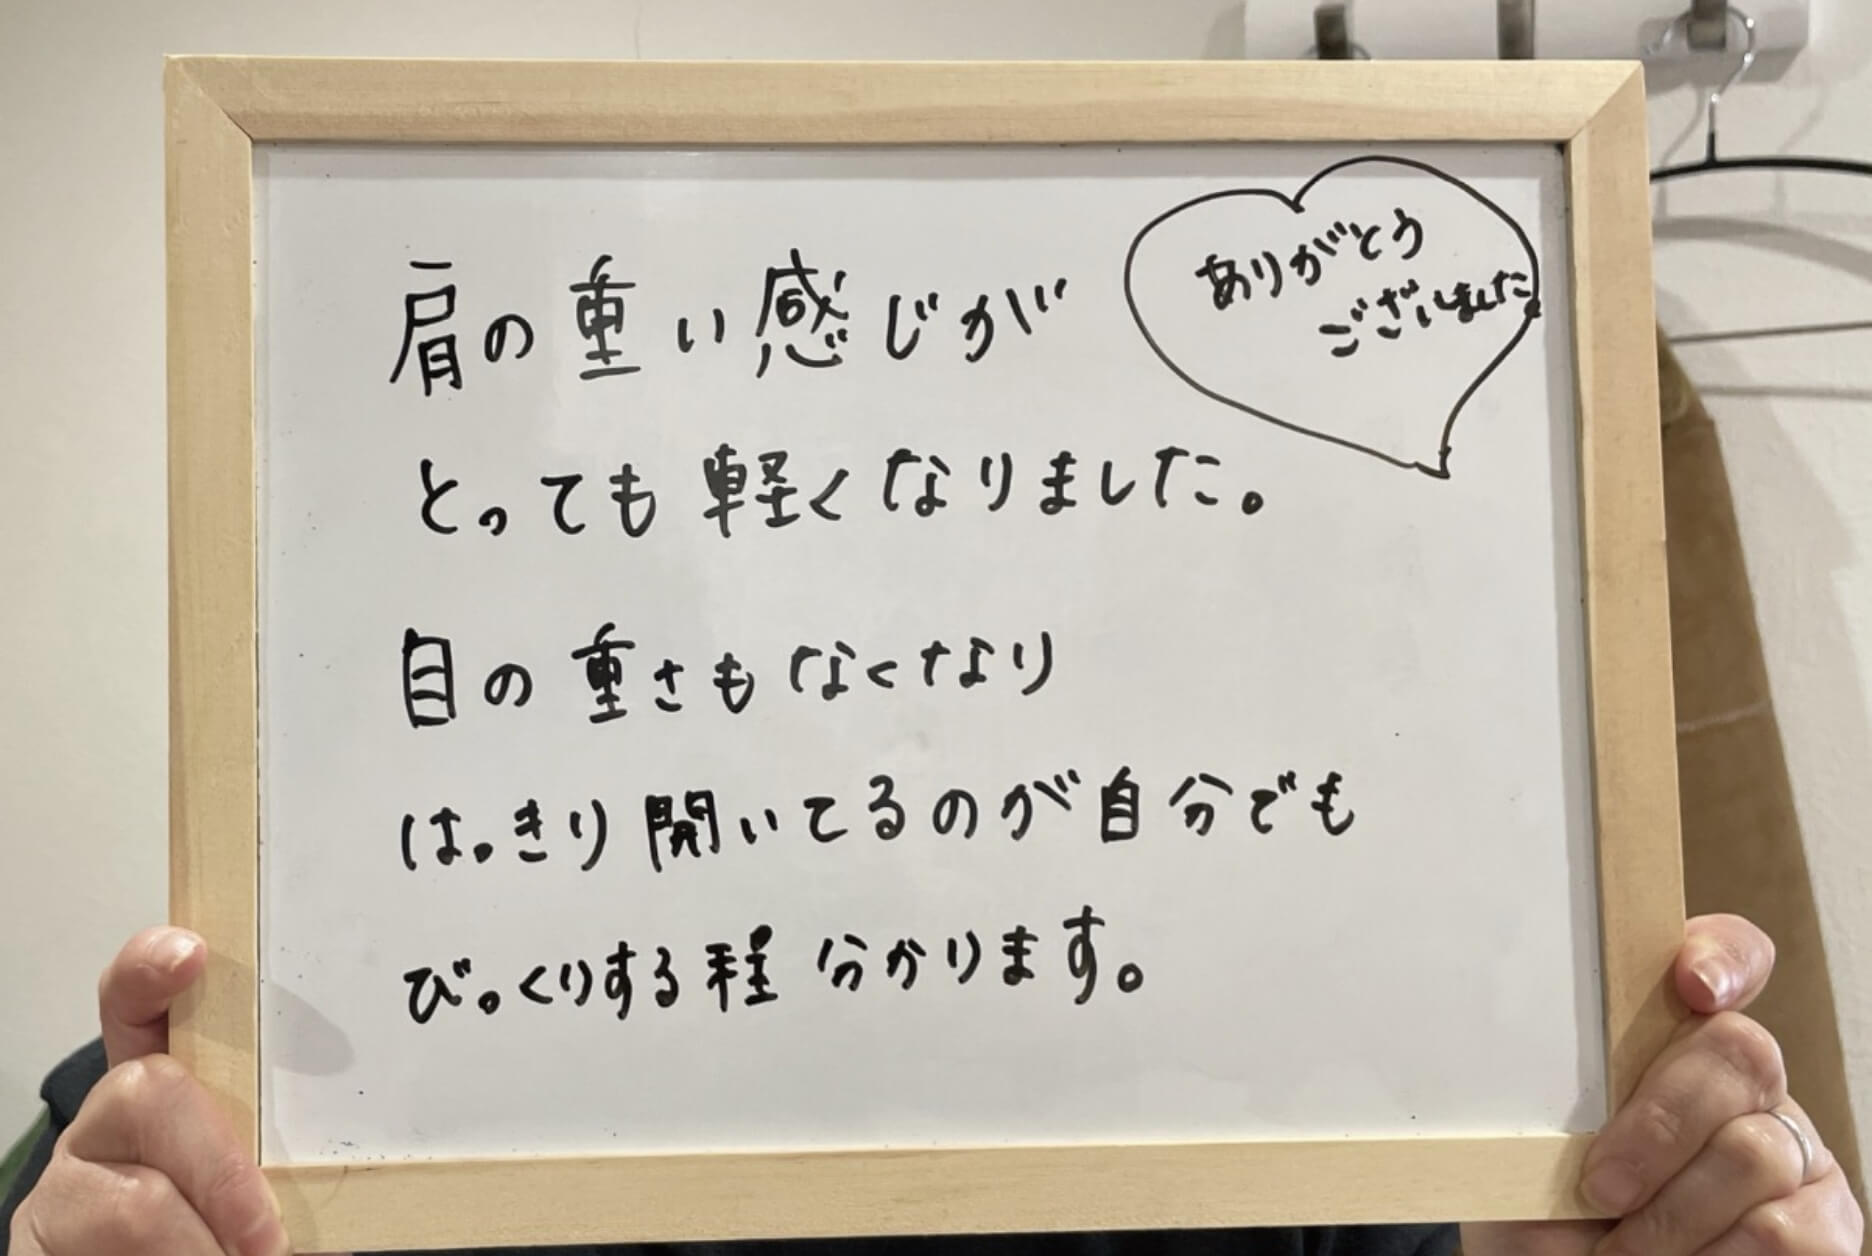 肩の重い感じが
とっても軽くなりました。
目の重さもなくなり
はっきり開いてるのが自分でも
びっくりする程分かります。
ありがとう
ございました